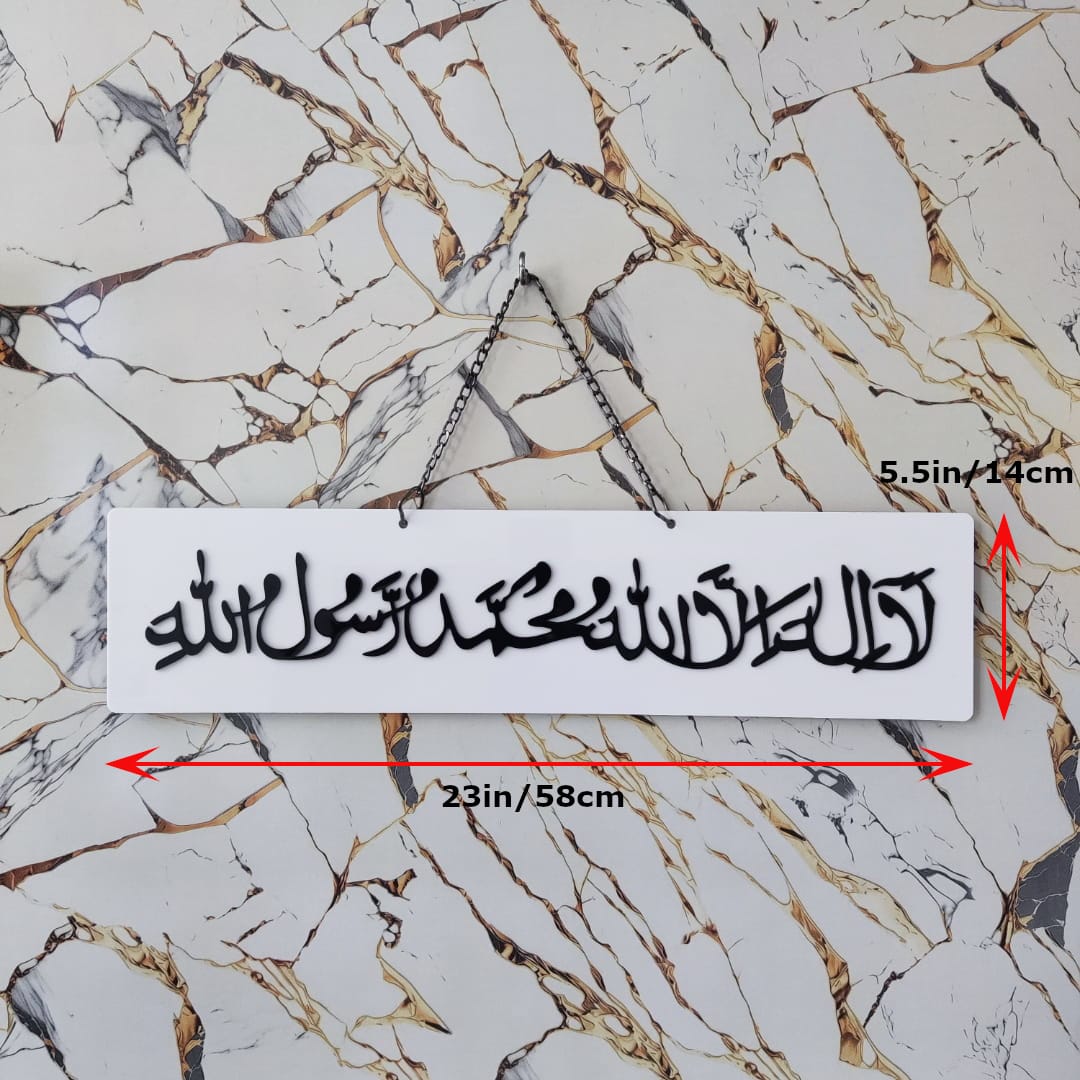 5.5in/14cm
لا إله إلا الله محمد رسول الله
23in/58cm